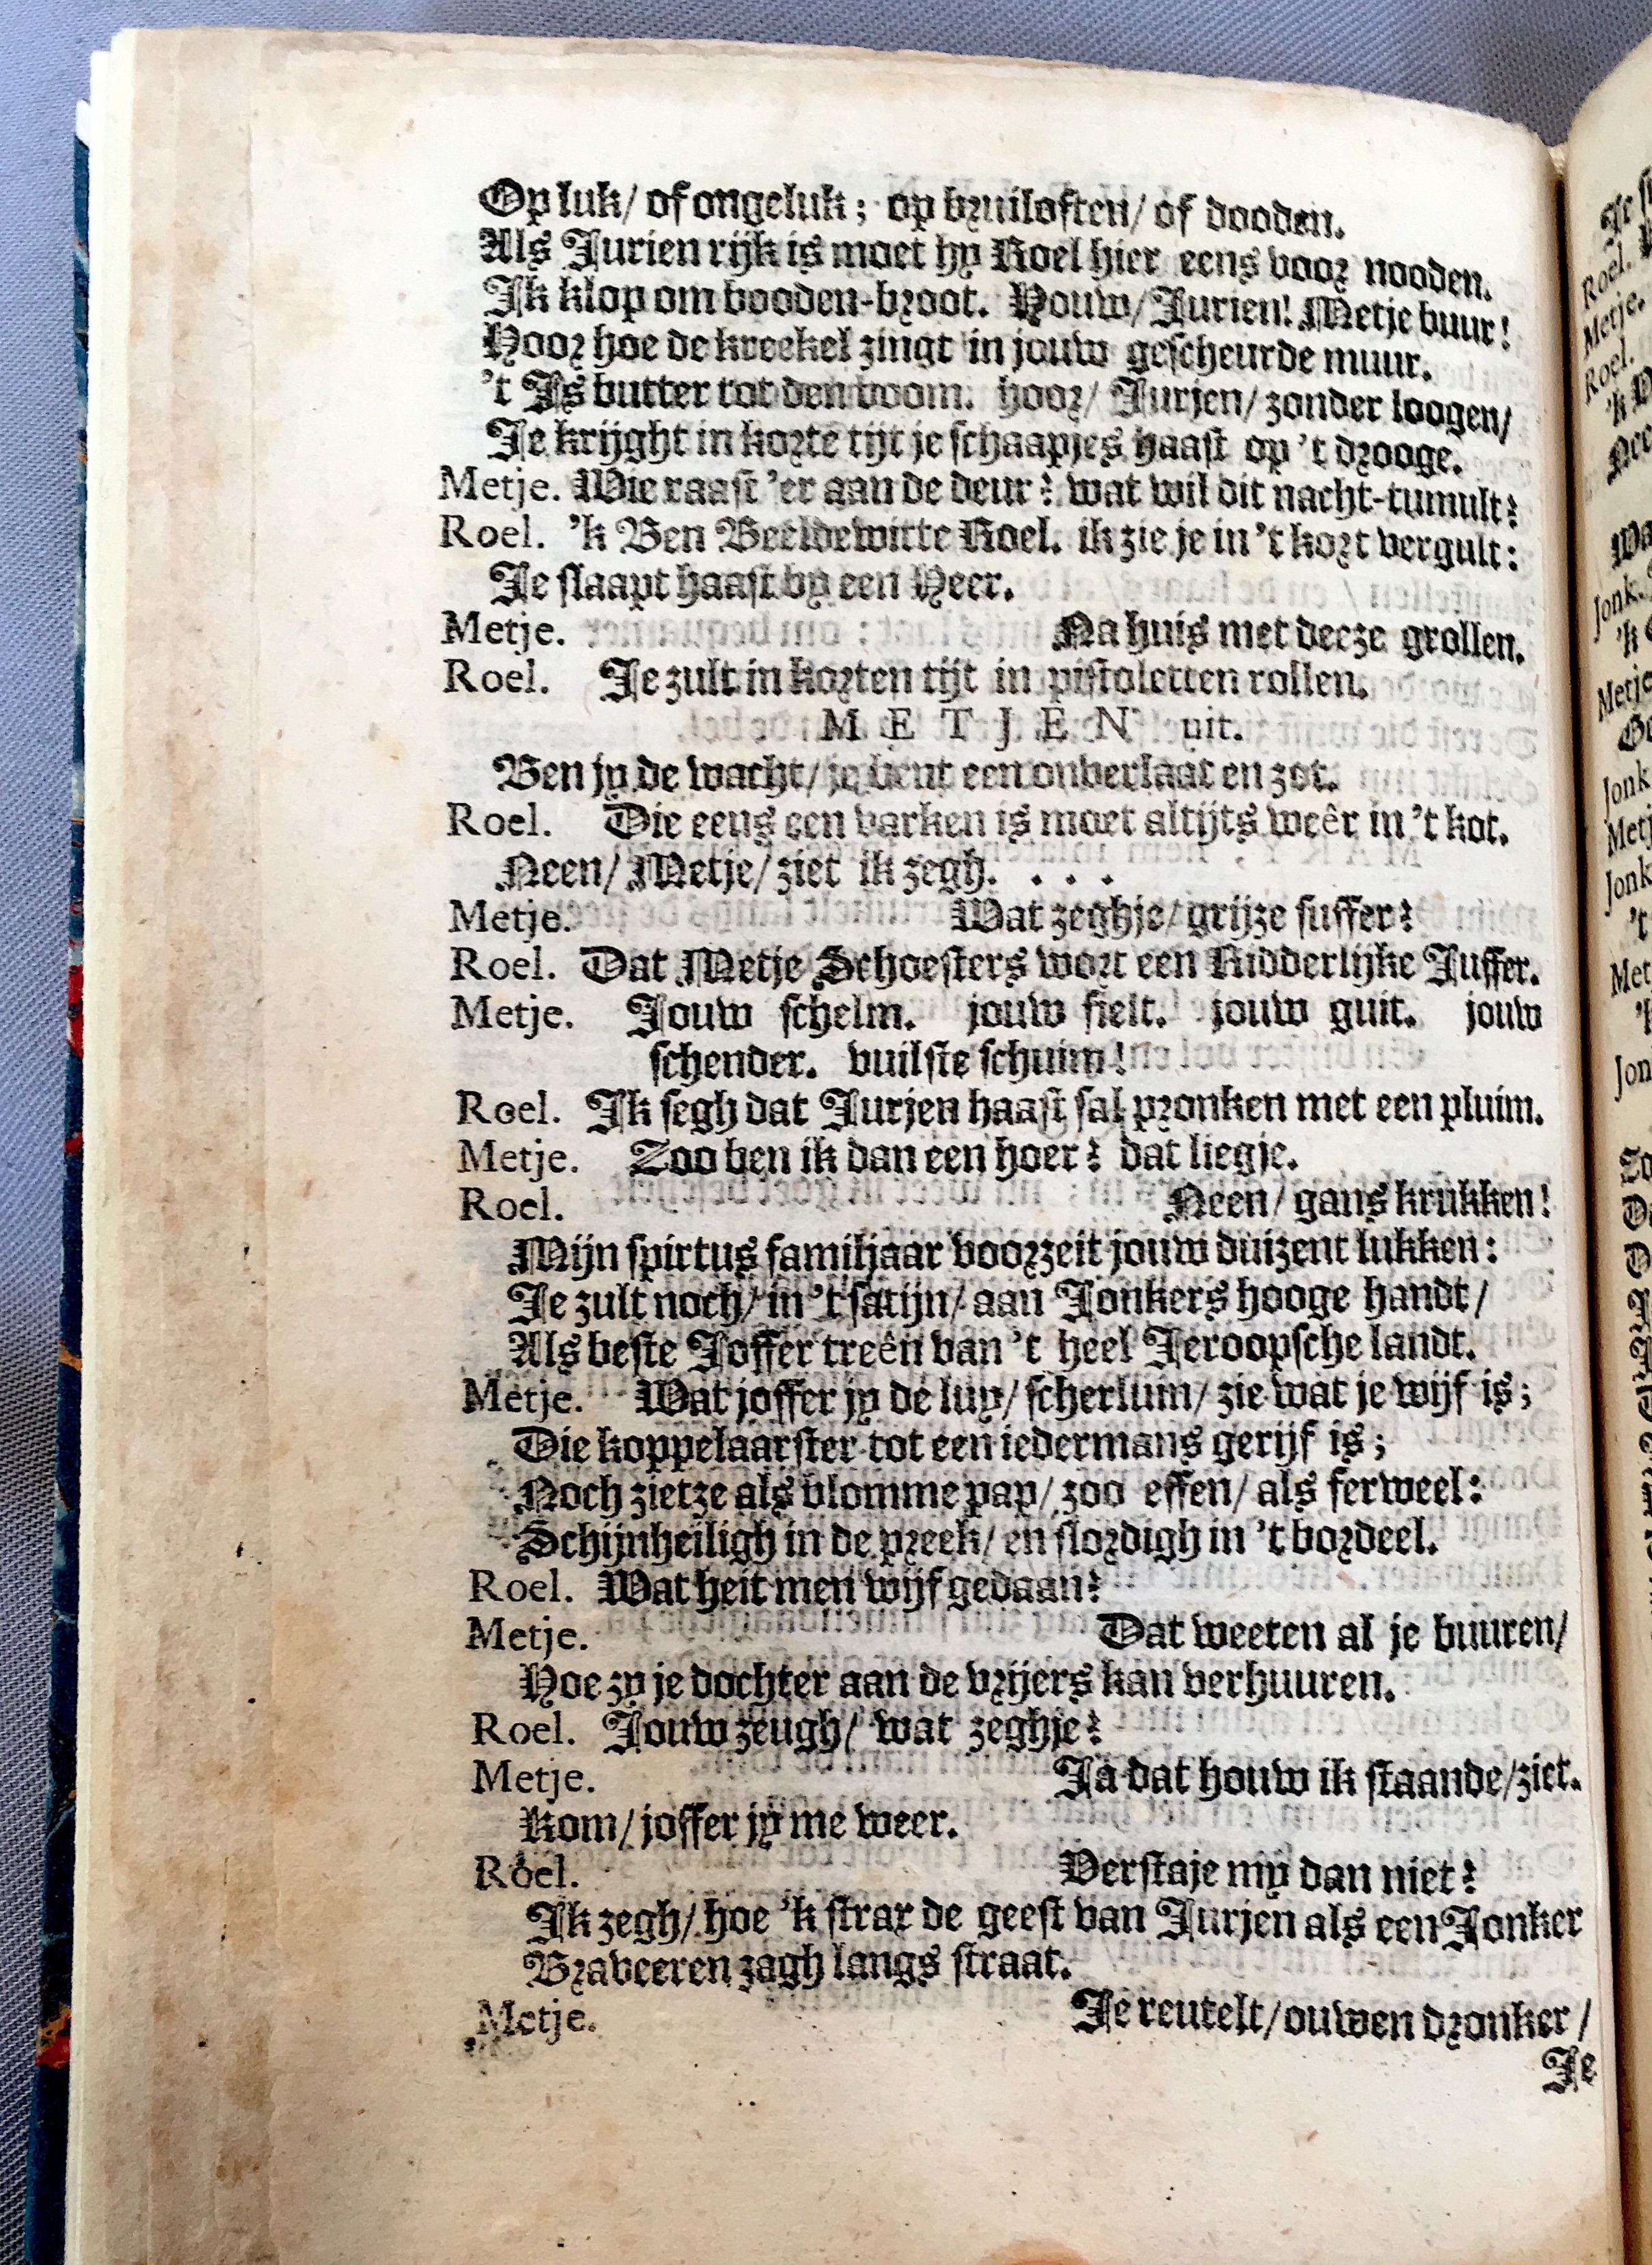 Op luk/ of ongeluk; op bruiloften/ of dooden.
Als Jurien rijk is moet hy Roel hier eens voor nooden.
Ik klop om booden-broot. Houw/ Jurien! Metje buur!
Hoor hoe de kreekel zingt in jouw gescheurde muur.
't Is butter tot den boom. hoor/ Jurjen/ zonder loogen/
Je krijght in korte tijt je schaapjes haast op 't drooge.
Metje. Wie raast 'er aan de deur? wat wil dit nacht-tumult?
Roel. 'k Ben Beeldewitte Roel. ik zie je in 't kort vergult:
Je slaapt haast by een Heer.
Metje. Na huis met deeze grollen.
Roel. Je zult in korten tijt in pistoletten rollen.
METJEN uit.
Ben jy de wacht/ je bent een onverlaat en zot.
Roel. Die eens een varken is moet altijts weêr in 't kot.
Neen/ Metje/ ziet ik zegh. . . .
Metje. Wat zeghje/ grijze suffer?
Roel. Dat Metje Schoesters wort een Ridderlijke Juffer.
Metje. Jouw schelm. jouw fielt. jouw guit. jouw
schender. vuilste schuim!
Roel. Ik segh dat Jurjen haast sal pronken met een pluim.
Metje. Zoo ben ik dan een hoer? dat liegje.
Roel. Neen/ gans krukken!
Mijn spirtus familjaar voorzeit jouw duizent lukken:
Je zult noch/ in 't satijn/ aan Jonkers hooge handt/
Als beste Joffer treên van 't heel Jeroopsche landt.
Metje. Wat joffer jy de luy/ scherluin/ zie wat je wijf is;
Die koppelaarster tot een iedermans gerijf is;
Noch zietze als blomme pap/ zoo effen/ als ferweel:
Schijnheiligh in de preek/ en slordigh in 't bordeel.
Roel. Wat heit men wijf gedaan?
Metje. Dat weeten al je buuren/
Hoe zy je dochter aan de vrijers kan verhuuren.
Roel. Jouw zeugh/ wat zeghje?
Metje. Ja dat houw ik staande/ziet.
Kom/ joffer jy me weer.
Roel. Verstaje my dan niet?
Ik zegh/ hoe 'k strax de geest van Jurjen als een Jonker
Braveeren zagh langs straat.
Metje. Je reutelt/ouwen dronker/
Je